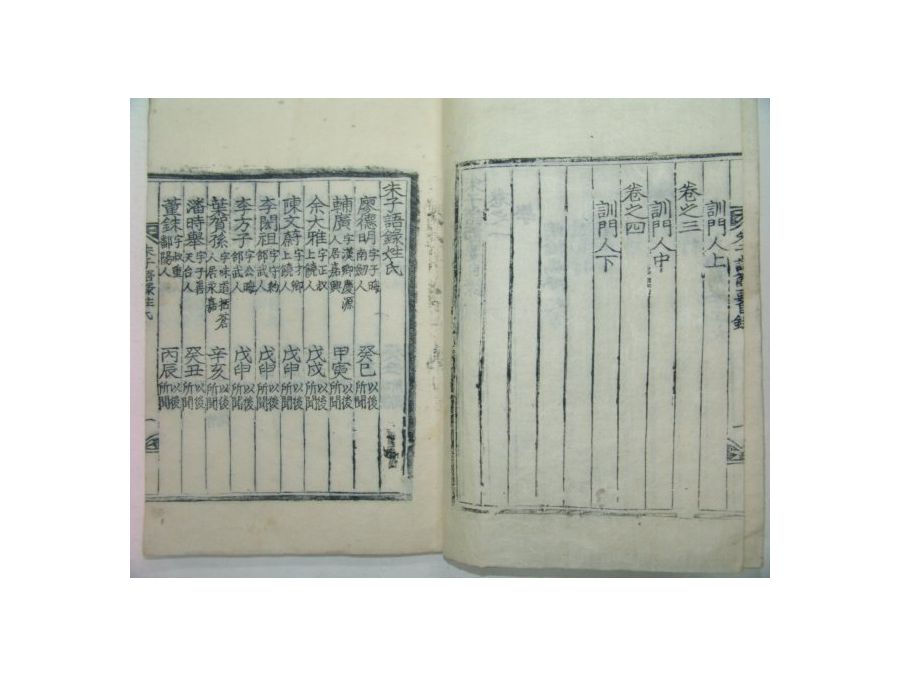 訓門人上
卷之三
訓門人中
卷之四
訓門人下
朱子語錄姓氏
廖德明字子晦南劒人 癸巳以後所聞
輔廣字漢卿慶源人居嘉興 甲寅以後所聞
余大雅字正叔上饒人 戊戌以後所聞
陳文蔚字才卿上饒人 戊申以後所聞
李閎祖字守約邵武人 戊申以後所聞
李方子字公晦邵武人 戊申以後所聞
葉賀孫字味道括蒼人居永嘉 辛亥以後所聞
潘時舉字子善天台人 癸丑以後所聞
董銖字叔重鄱陽人 丙辰以後所聞
朱子語錄姓氏